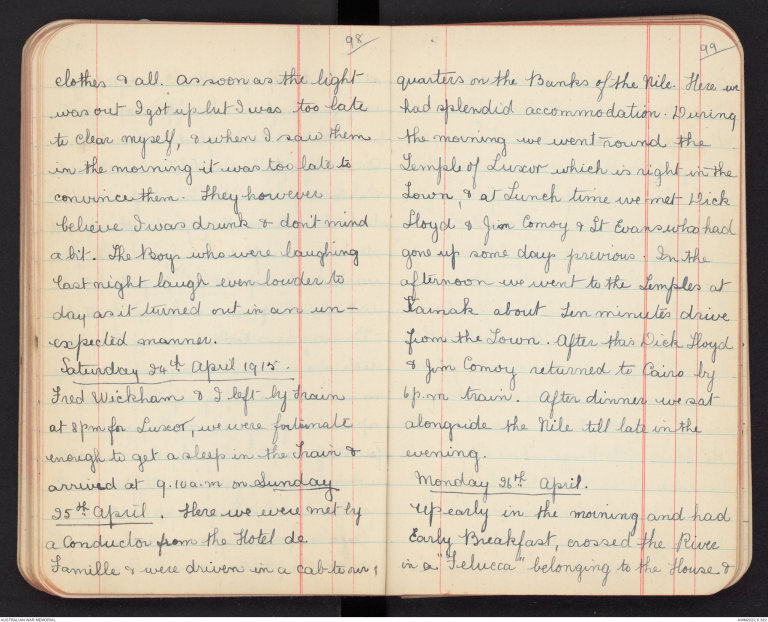 98
clothes & all. As soon as the light
was out I got up but I was too late
to clear myself, & when I saw them
in the morning it was too late to
convince them. They however
believe I was drunk & don't mind
a bit. The Boys who were laughing
last night laugh even louder to
day as it turned out in an un-
expected manner.
Saturday 24th April 1915.
Fred Wickham & I left by Train
at 8pm for Luxor, we were fortunate
enough to get a sleep in the Train &
arrived at 9.10 a.m on Sunday
25th April. Here we were met by
a Conductor from the Hotel de
Famille & were driven in a cab to our
99
quarters on the Banks of the Nile. Here we
had splendid accommodation. During
the morning we went round the
Temple of Luxor which is right in the
Town, & at Lunch time we met Dick
Lloyd & Jim Comoy & Lt Evans who had
gone up some days previous. In the
afternoon we went to the Temples at
Karnak about Ten minutes drive
from the Town. After this Dick Lloyd
& Jim Comoy returned to Cairo by
6 p.m train. After dinner we sat
alongside the Nile till late in the
evening.
Monday 26th April.
Up early in the morning and had
Early Breakfast, crossed the River
in a "Felucca" belonging to the House &
AUSTRALIAN WAR MEMORIAL